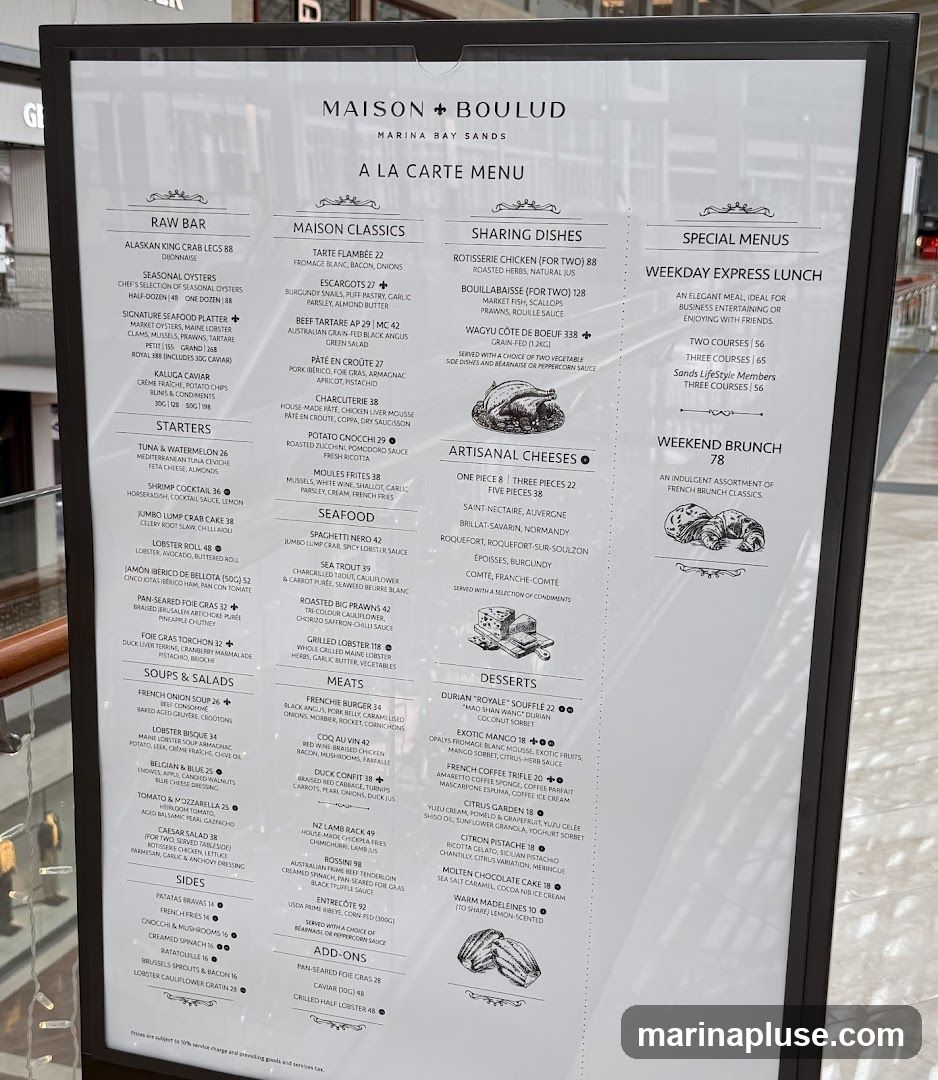 MAISON BOULUD
MARINA BAY SANDS
A LA CARTE MENU
RAW BAR
ALASKAN KING CRAB LEGS 88
DIJONNAISE
SEASONAL OYSTERS
CHEF'S SELECTION OF SEASONAL OYSTERS
HALF-DOZEN | 48 ONE DOZEN | 88
SIGNATURE SEAFOOD PLATTER
MARKET OYSTERS, MAINE LOBSTER
CLAMS, MUSSELS, PRAWNS, TARTARE
PETIT | 155 GRAND | 268
ROYAL 388 (INCLUDES 30G CAVIAR)
KALUGA CAVIAR
CRÈME FRAÎCHE, POTATO CHIPS
BLINIS & CONDIMENTS
30G | 128 50G | 198
STARTERS
TUNA & WATERMELON 26
MEDITERRANEAN TUNA CEVICHE
FETA CHEESE, ALMONDS
SHRIMP COCKTAIL 36
HORSERADISH, COCKTAIL SAUCE, LEMON
JUMBO LUMP CRAB CAKE 38
CELERY ROOT SLAW, CHILLI AIOLI
LOBSTER ROLL 48
LOBSTER, AVOCADO, BUTTERED ROLL
JAMÓN IBÉRICO DE BELLOTA (50G) 52
CINCO JOTAS IBÉRICO HAM, PAN CON TOMATE
PAN-SEARED FOIE GRAS 32
BRAISED JERUSALEM ARTICHOKE PURÉE
PINEAPPLE CHUTNEY
FOIE GRAS TORCHON 32
DUCK LIVER TERRINE, CRANBERRY MARMALADE
PISTACHIO, BRIOCHE
SOUPS & SALADS
FRENCH ONION SOUP 26
BEEF CONSOMMÉ
BAKED AGED GRUYÈRE, CROÛTONS
LOBSTER BISQUE 34
MAINE LOBSTER SOUP ARMAGNAC
POTATO, LEEK, CRÈME FRAÎCHE, CHIVE OIL
BELGIAN & BLUE 25
ENDIVES, APPLE, CANDIED WALNUTS
BLUE CHEESE DRESSING
TOMATO & MOZZARELLA 25
HEIRLOOM TOMATO,
AGED BALSAMIC PEARL GAZPACHO
CAESAR SALAD 38
(FOR TWO, SERVED TABLESIDE)
ROTISSERIE CHICKEN, LETTUCE
PARMESAN, GARLIC & ANCHOVY DRESSING
SIDES
PATATAS BRAVAS 14
FRENCH FRIES 14
GNOCCHI & MUSHROOMS 16
CREAMED SPINACH 16
RATATOUILLE 16
BRUSSELS SPROUTS & BACON 16
LOBSTER CAULIFLOWER GRATIN 28
MAISON CLASSICS
TARTE FLAMBÉE 22
FROMAGE BLANC, BACON, ONIONS
ESCARGOTS 27
BURGUNDY SNAILS, PUFF PASTRY, GARLIC
PARSLEY, ALMOND BUTTER
BEEF TARTARE AP 29 | MC 42
AUSTRALIAN GRAIN-FED BLACK ANGUS
GREEN SALAD
PÂTÉ EN CROÛTE 27
PORK IBÉRICO, FOIE GRAS, ARMAGNAC
APRICOT, PISTACHIO
CHARCUTERIE 38
HOUSE-MADE PÂTÉ, CHICKEN LIVER MOUSSE
PÂTÉ EN CROUTE, COPPA, DRY SAUCISSON
POTATO GNOCCHI 29
ROASTED ZUCCHINI, POMODORO SAUCE
FRESH RICOTTA
MOULES FRITES 38
MUSSELS, WHITE WINE, SHALLOT, GARLIC
PARSLEY, CREAM, FRENCH FRIES
SEAFOOD
SPAGHETTI NERO 42
JUMBO LUMP CRAB, SPICY LOBSTER SAUCE
SEA TROUT 39
CHARGRILLED TROUT, CAULIFLOWER
& CARROT PURÉE, SEAWEED BEURRE BLANC
ROASTED BIG PRAWNS 42
TRI-COLOUR CAULIFLOWER,
CHORIZO SAFFRON-CHILLI SAUCE
GRILLED LOBSTER 118
WHOLE GRILLED MAINE LOBSTER
HERBS, GARLIC BUTTER, VEGETABLES
MEATS
FRENCHIE BURGER 34
BLACK ANGUS, PORK BELLY, CARAMELISED
ONIONS, MORBIER, ROCKET, CORNICHONS
COQ AU VIN 42
RED WINE-BRAISED CHICKEN
BACON, MUSHROOMS, FARFALLE
DUCK CONFIT 38
BRAISED RED CABBAGE, TURNIPS
CARROTS, PEARL ONIONS, DUCK JUS
NZ LAMB RACK 49
HOUSE-MADE CHICKPEA FRIES
CHIMICHURRI, LAMB JUS
ROSSINI 98
AUSTRALIAN PRIME BEEF TENDERLOIN
CREAMED SPINACH, PAN-SEARED FOIE GRAS
BLACK TRUFFLE SAUCE
ENTRECÔTE 92
USDA PRIME RIBEYE, CORN-FED (300G)
SERVED WITH A CHOICE OF
BÉARNAISE OR PEPPERCORN SAUCE
ADD-ONS
PAN-SEARED FOIE GRAS 28
CAVIAR (10G) 48
GRILLED HALF LOBSTER 48
SHARING DISHES
ROTISSERIE CHICKEN (FOR TWO) 88
ROASTED HERBS, NATURAL JUS
BOUILLABAISSE (FOR TWO) 128
MARKET FISH, SCALLOPS
PRAWNS, ROUILLE SAUCE
WAGYU CÔTE DE BOEUF 338
GRAIN-FED (1.2KG)
SERVED WITH A CHOICE OF TWO VEGETABLE
SIDE DISHES AND BÉARNAISE OR PEPPERCORN SAUCE
ARTISANAL CHEESES
ONE PIECE 8 | THREE PIECES 22
FIVE PIECES 38
SAINT-NECTAIRE, AUVERGNE
BRILLAT-SAVARIN, NORMANDY
ROQUEFORT, ROQUEFORT-SUR-SOULZON
ÉPOISSES, BURGUNDY
COMTÉ, FRANCHE-COMTÉ
SERVED WITH A SELECTION OF CONDIMENTS
DESSERTS
DURIAN "ROYALE" SOUFFLÉ 22
"MAO SHAN WANG" DURIAN
COCONUT SORBET
EXOTIC MANGO 18
OPALYS FROMAGE BLANC MOUSSE, EXOTIC FRUITS,
MANGO SORBET, CITRUS-HERB SAUCE
FRENCH COFFEE TRIFLE 20
AMARETTO COFFEE SPONGE, COFFEE PARFAIT
MASCARPONE ESPUMA, COFFEE ICE CREAM
CITRUS GARDEN 18
YUZU CREAM, POMELO & GRAPEFRUIT, YUZU GELÉE
SHISO OIL, SUNFLOWER GRANOLA, YOGHURT SORBET
CITRON PISTACHE 18
RICOTTA GELATO, SICILIAN PISTACHIO
CHANTILLY, CITRUS VARIATION, MERINGUE
MOLTEN CHOCOLATE CAKE 18
SEA SALT CARAMEL, COCOA NIB ICE CREAM
WARM MADELEINES 10
(TO SHARE) LEMON-SCENTED
SPECIAL MENUS
WEEKDAY EXPRESS LUNCH
AN ELEGANT MEAL, IDEAL FOR
BUSINESS ENTERTAINING OR
ENJOYING WITH FRIENDS.
TWO COURSES | 56
THREE COURSES | 65
Sands LifeStyle Members
THREE COURSES | 56
WEEKEND BRUNCH
78
AN INDULGENT ASSORTMENT OF
FRENCH BRUNCH CLASSICS.
Prices are subject to 10% service charge and prevailing goods and services tax.
marinapluse.com